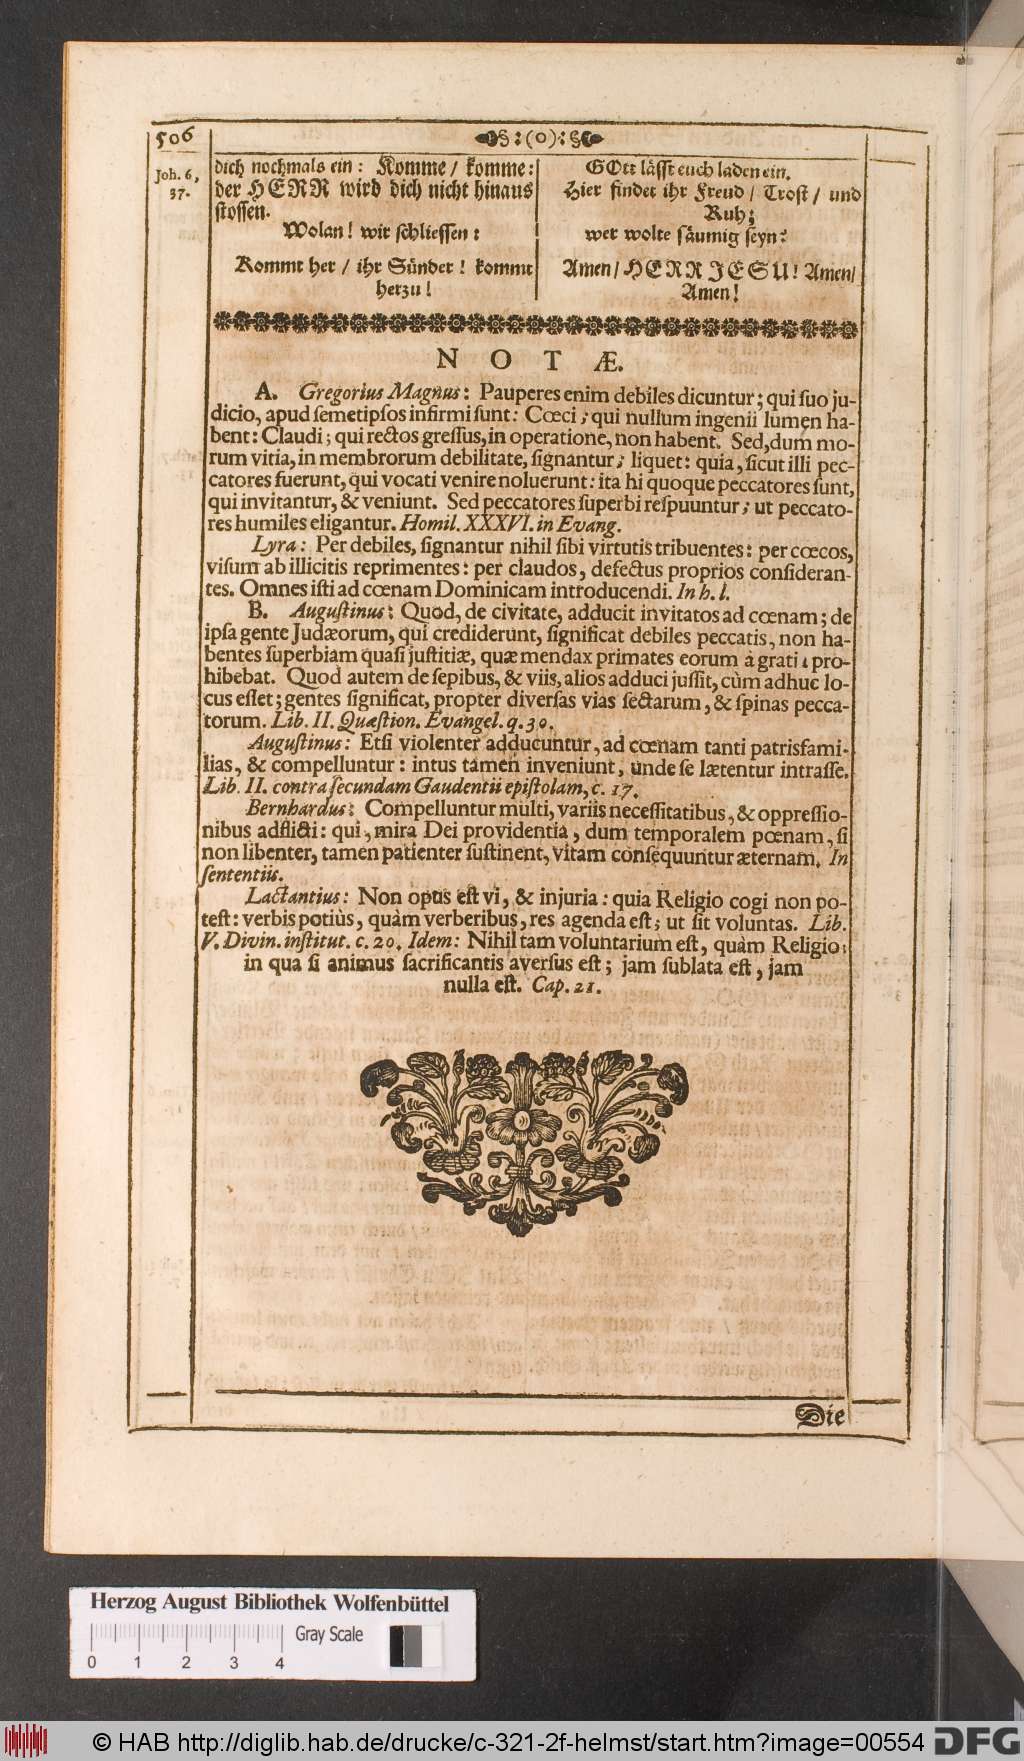 506
§:(o):§
Joh. 6,
37.
dich nochmals ein: Komme / komme:
der HERR wird dich nicht hinaus
stossen.
Wolan! wir schliessen:
Kommt her / ihr Sünder! kommt
herzu!
GOtt lässt euch laden ein.
Hier findet ihr Freud / Trost / und
Ruh;
wer wolte säumig seyn?
Amen / HERR JESU! Amen /
Amen!
NOTÆ.
A. Gregorius Magnus: Pauperes enim debiles dicuntur; qui suo ju-
dicio, apud semetipsos infirmi sunt: Cœci; qui nullum ingenii lumen ha-
bent: Claudi; qui rectos gressus, in operatione, non habent. Sed, dum mo-
rum vitia, in membrorum debilitate, signantur; liquet: quia, sicut illi pec-
catores fuerunt, qui vocati venire noluerunt: ita hi quoque peccatores sunt,
qui invitantur, & veniunt. Sed peccatores superbi respuuntur; ut peccato-
res humiles eligantur. Homil. XXXVI. in Evang.
Lyra: Per debiles, signantur nihil sibi virtutis tribuentes: per cœcos,
visum ab illicitis reprimentes: per claudos, defectus proprios consideran-
tes. Omnes isti ad cœnam Dominicam introducendi. In h. l.
B. Augustinus: Quod, de civitate, adducit invitatos ad cœnam; de
ipsa gente Judæorum, qui crediderunt, significat debiles peccatis, non ha-
bentes superbiam quasi justitiæ, quæ mendax primates eorum à gratia pro-
hibebat. Quod autem de sepibus, & viis, alios adduci jussit, cùm adhuc lo-
cus esset; gentes significat, propter diversas vias sectarum, & spinas pecca-
torum. Lib. II. Quæstion. Evangel. q. 30.
Augustinus: Etsi violenter adducuntur, ad cœnam tanti patrisfami-
lias, & compelluntur: intus tamen inveniunt, unde se lætentur intrasse.
Lib. II. contra secundam Gaudentii epistolam, c. 17.
Bernhardus: Compelluntur multi, variis necessitatibus, & oppressio-
nibus adflicti: qui, mira Dei providentia, dum temporalem pœnam, si
non libenter, tamen patienter sustinent, vitam consequuntur æternam. In
sententiis.
Lactantius: Non opus est vi, & injuria: quia Religio cogi non po-
test: verbis potiùs, quàm verberibus, res agenda est; ut sit voluntas. Lib.
V. Divin. institut. c. 20. Idem: Nihil tam voluntarium est, quàm Religio:
in qua si animus sacrificantis aversus est; jam sublata est, jam
nulla est. Cap. 21.
Die
Herzog August Bibliothek Wolfenbüttel
Gray Scale
0 1 2 3 4
© HAB http://diglib.hab.de/drucke/c-321-2f-helmst/start.htm?image=00554
DFG